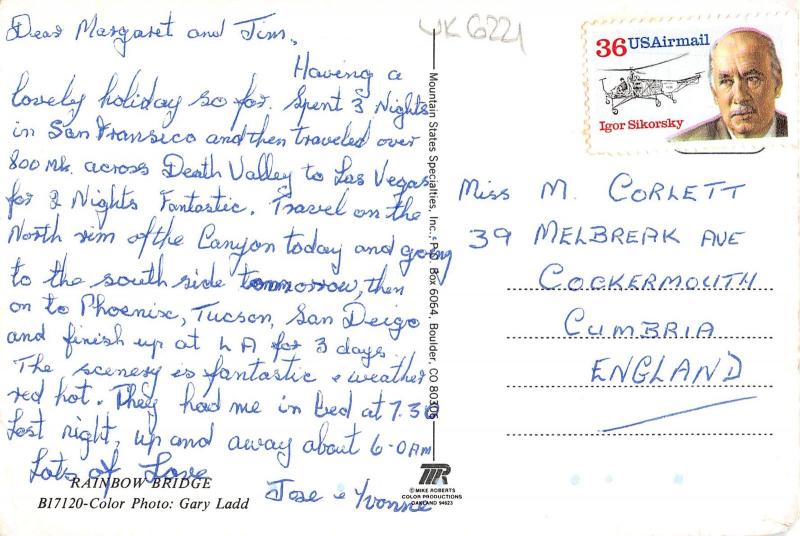 Dear Margaret and Jim,
Having a
lovely holiday so far. Spent 3 Nights
in San Fransico and then traveled over
800 Mls. across Death Valley to Las Vegas
for 2 Nights Fantastic. Travel on the
North rim of the Canyon today and going
to the south side tommorrow, then
on to Phoenix, Tucson, San Deigo
and finish up at LA for 3 days.
The scenery is fantastic & weather
red hot. They had me in bed at 7.30
Last night, up and away about 6-0 AM
Lots of Love
Jose & Yvonne
RAINBOW BRIDGE
B17120-Color Photo: Gary Ladd
Mountain States Specialties, Inc., P.O. Box 6054, Boulder, CO 80306
MR
©MIKE ROBERTS
COLOR PRODUCTIONS
OAKLAND 94623
UK G221
36 USAirmail
Igor Sikorsky
Miss M. CORLETT
39 MELBREAK AVE
COCKERMOUTH
CUMBRIA
ENGLAND